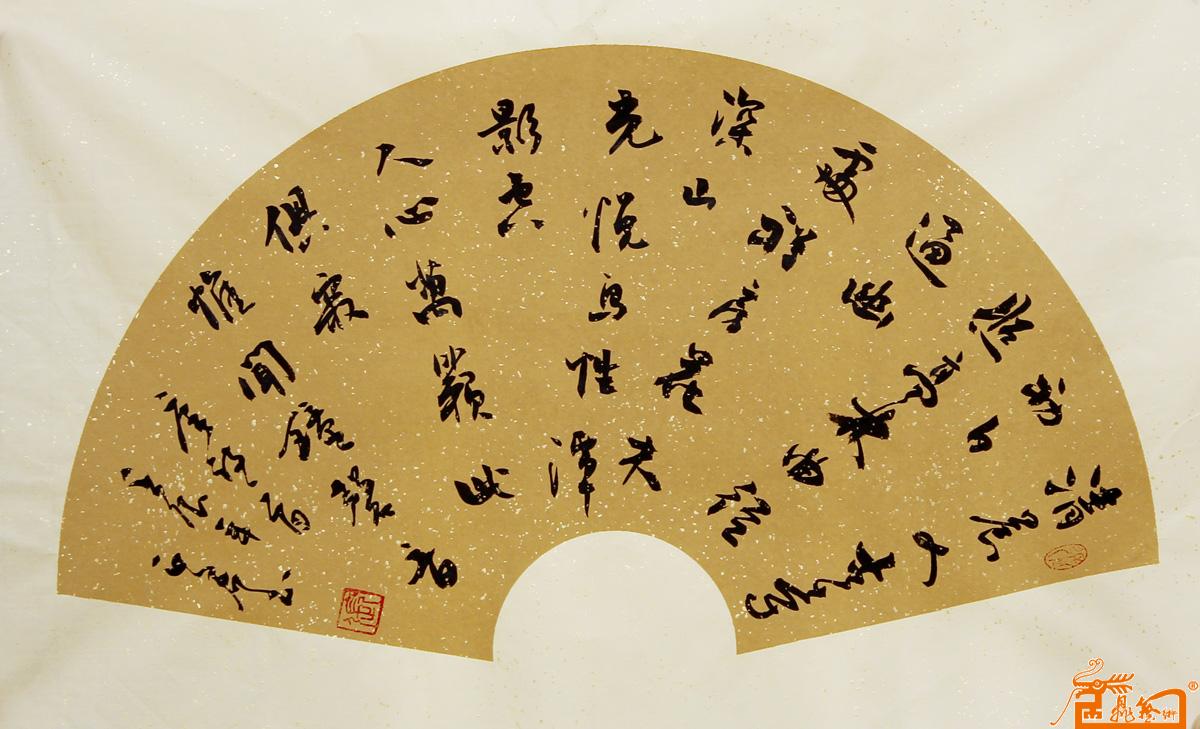 清晨入古寺
初日
照高林曲径
通幽
處禅房花木
深山
光悦鳥性潭
影空
人心萬籟此
俱寂
惟聞鐘磬音